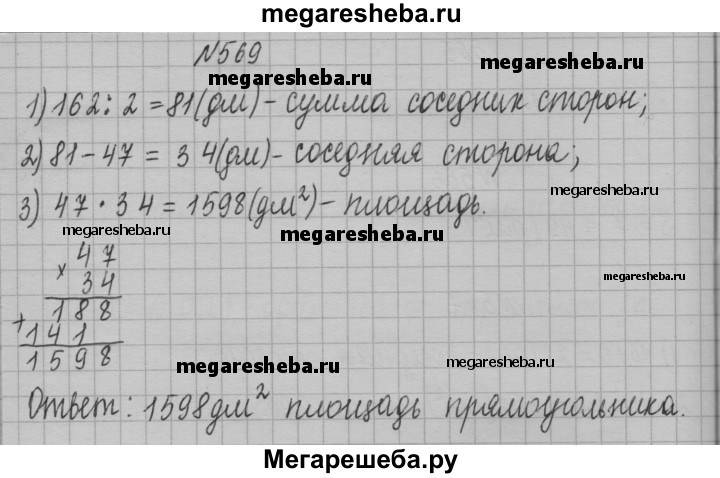 megaresheba.ru
№569
megaresheba.ru
megaresheba.ru
1) 162 : 2 = 81(дм) - сумма соседних сторон;
2) 81 - 47 = 34(дм) - соседняя сторона;
megaresheba.ru
3) 47 · 34 = 1598(дм²) - площадь.
megaresheba.ru
megaresheba.ru
× 47
34
megaresheba.ru
188
+ 141
1598
megaresheba.ru
megaresheba.ru
Ответ: 1598дм² площадь прямоугольника.
Мегарешеба.ру